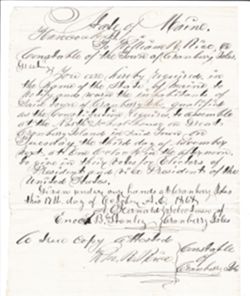 State of Maine.
Hancock ss.
To William P. Rice, or
Constable of the Town of Cranberry Isles
Greeting
You are hereby required, in
the name of the State of Maine, to
notify and warn the inhabitants of
said town of Cranberry Isles qualified
as the Constitution requires to assemble
at the School House on Great
Cranberry Island in said Town, on
Tuesday the third day of November
next, at o'clock in the
to give in their votes for Electors of
President and Vice President of the
United States.
Given under our hands at Cranberry Isles
this 17th day of October A.D. 1868
Selectmen of
Enoch B. Stanley Cranberry Isles
A True Copy Attested
Wm. P. Rice Constable
of
Cranberry Isles